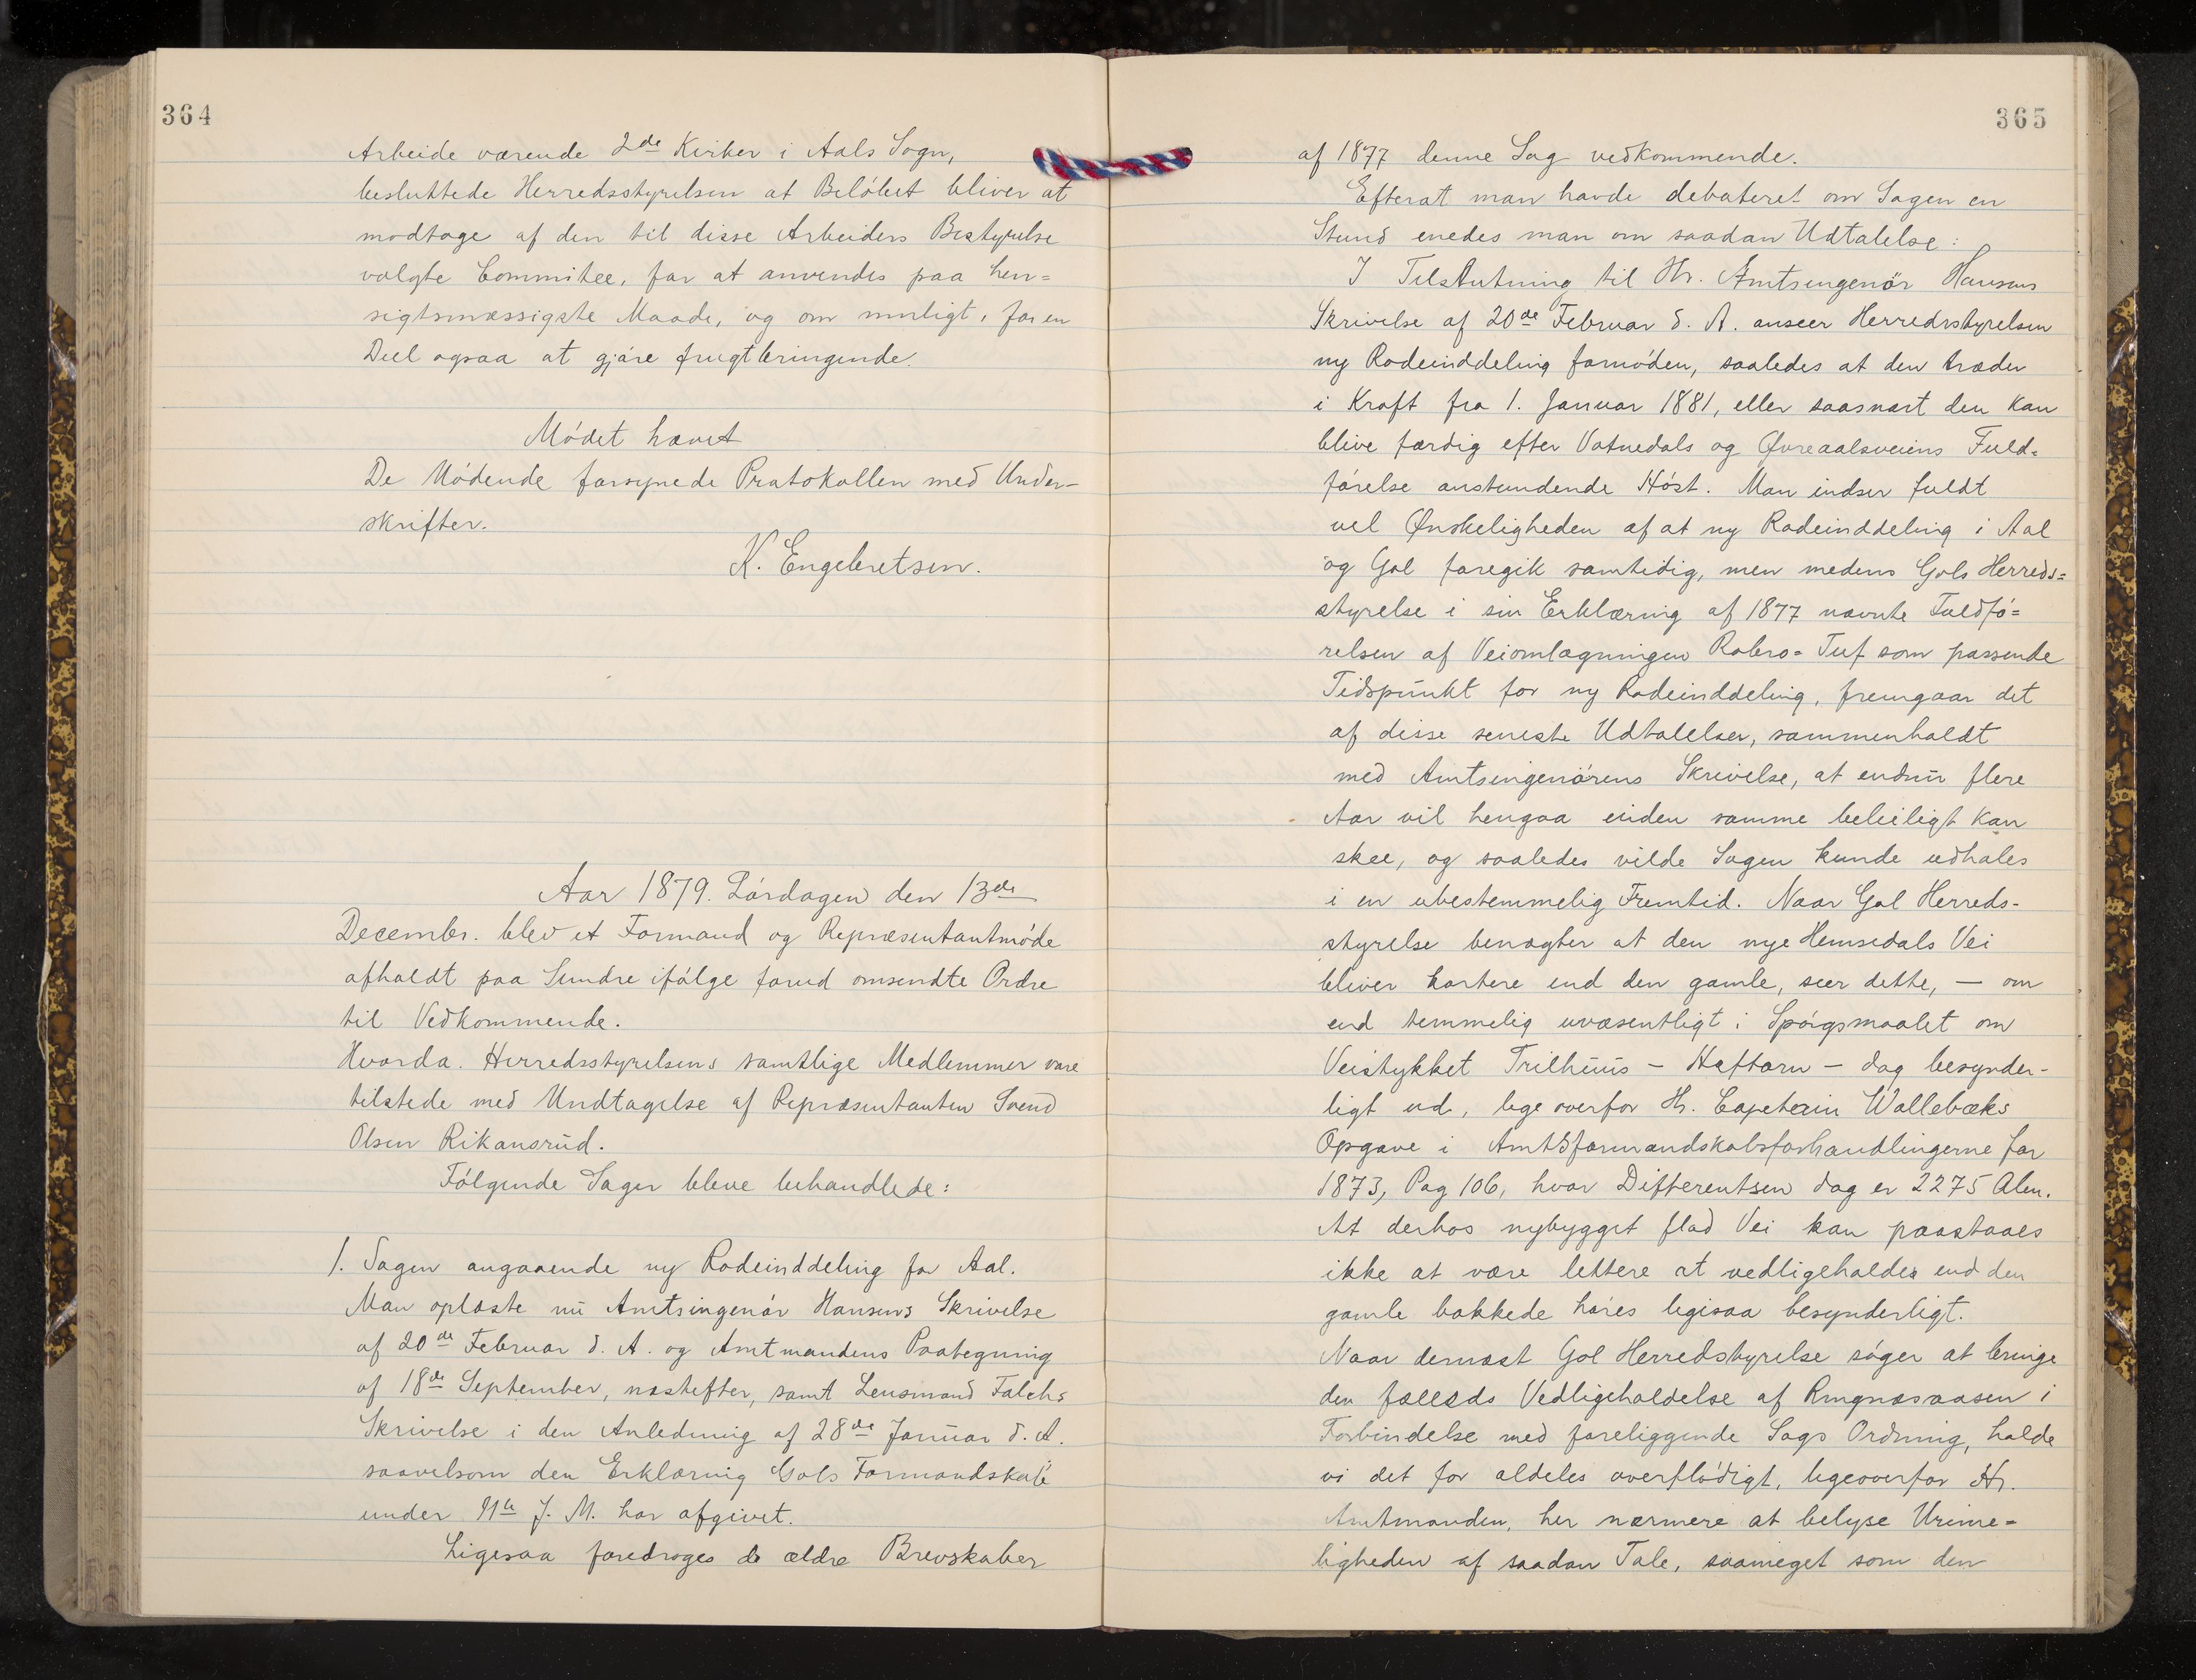 364
Arbeide værende 2de Kirker i Aals Sogn,
besluttede Herredsstyrelsen at Beløbet bliver at
modtage af den til disse Arbeiders Bestyrelse
valgte Commitee, for at anvendes paa hen=
sigtsmæssigste Maade, og om muligt, for en
Deel ogsaa at gjøre frugtbringende.
Mødet hævet
De Mødende forsynede Protokollen med Under-
skrifter.
K. Engebretsen.
Aar 1879. Lørdagen den 13de
Decembr. blev et Formand og Repræsentantmøde
afholdt paa Sundre ifølge forud omsendte Ordre
til Vedkommende.
Hvorda. Herredsstyrelsens samtlige Medlemmer vare
tilstede med Undtagelse af Repræsentanten Svend
Olsen Rikansrud.
Følgende Sager bleve behandlede:
1. Sagen angaaende ny Rodeinddeling for Aal.
Man oplæste nu Amtsingenør Hansens Skrivelse
af 20de Februar d. A. og Amtmandens Paategning
af 18de September, næstefter, samt Lensmand Falchs
Skrivelse i den Anledning af 28de Januar d. A.
saavelsom den Erklæring Gols Formandskab
under 11te f. M. har afgivet.
Ligesaa foredroges de ældre Brevskaber
365
af 1877 denne Sag vedkommende.
Efterat man havde debateret om Sagen en
Stund enedes man om saadan Udtalelse:
I Tilslutning til Hr. Amtsingenør Hansens
Skrivelse af 20de Februar d. A. anseer Herredsstyrelsen
ny Rodeinddeling fornøden, saaledes at den træder
i Kraft fra 1. Januar 1881, eller saasnart den kan
blive færdig efter Votnedals og Øvreaalsveiens Fuld=
førelse anstundende Høst. Man indser fuldt
vel Ønskeligheden af at ny Rodeinddeling i Aal
og Gol foregik samtidig, men medens Gols Herreds=
styrelse i sin Erklæring af 1877 nævnte Fuldfø=
relsen af Veiomlægningen Robro=Tuf som passende
Tidspunkt for ny Rodeinddeling, fremgaar det
af disse seneste Udtalelser, sammenholdt
med Amtsingenørens Skrivelse, at endnu flere
Aar vil hengaa inden samme beleiligt kan
skee, og saaledes vilde Sagen kunde udhales
i en ubestemmelig Fremtid. Naar Gol Herreds-
styrelse benægter at den nye Hemsedals Vei
bliver kortere end den gamle, seer dette, — om
end temmelig uvæsentligt i Spørgsmaalet om
Veistykket Trilhuus – Heftorn – dog besynder-
ligt ud, lige overfor Hr. Capetain Wallebæks
Opgave i Amtsformandskabsforhandlingerne for
1873, Pag 106, hvor Differentsen dog er 2275 Alen.
At derhos nybygget flad Vei kan paastaaes
ikke at være lettere at vedligeholdes end den
gamle bakkede høres ligisaa besynderligt.
Naar dernæst Gol Herredstyrelse søger at bringe
den fælleds Vedligeholdelse af Ringnesaasen i
Forbindelse med foreliggende Sags Ordning, holde
vi det for aldeles overflødigt, ligeoverfor Hr.
Amtmanden, her nærmere at belyse Urime=
ligheden af saadan Tale, saameget som den